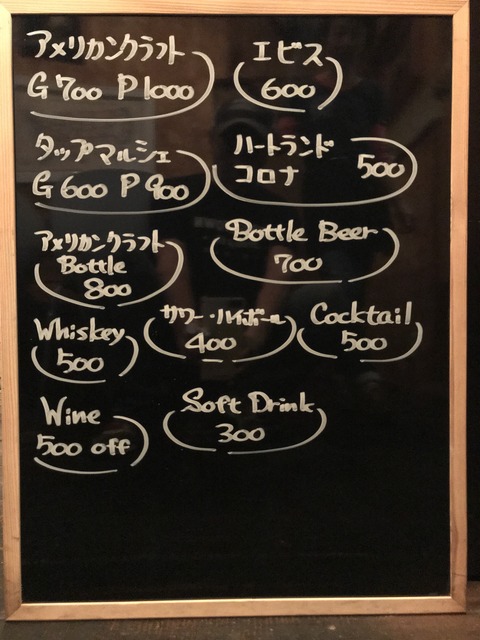 アメリカンクラフト
G 700 P 1000
エビス
600
タップマルシェ
G 600 P 900
ハートランド
コロナ 500
アメリカンクラフト
Bottle
800
Bottle Beer
700
Whiskey
500
サワー・ハイボール
400
Cocktail
500
Wine
500 off
Soft Drink
300